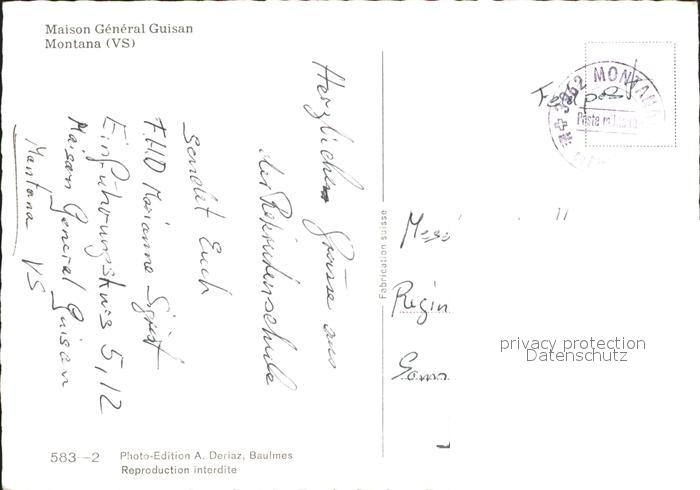 Maison Général Guisan
Montana (VS)
Herzliche Grüsse aus
der Rekrutenschule
sendet Euch
FHD Marianne Sigrist
Einführungskurs 5, 12
Maison General Guisan
Montana VS
583—2
Photo-Edition A. Deriaz, Baulmes
Reproduction interdite
Fabrication suisse
Feldpost
3962 MONTANA
Poste militaire
Regin
privacy protection
Datenschutz